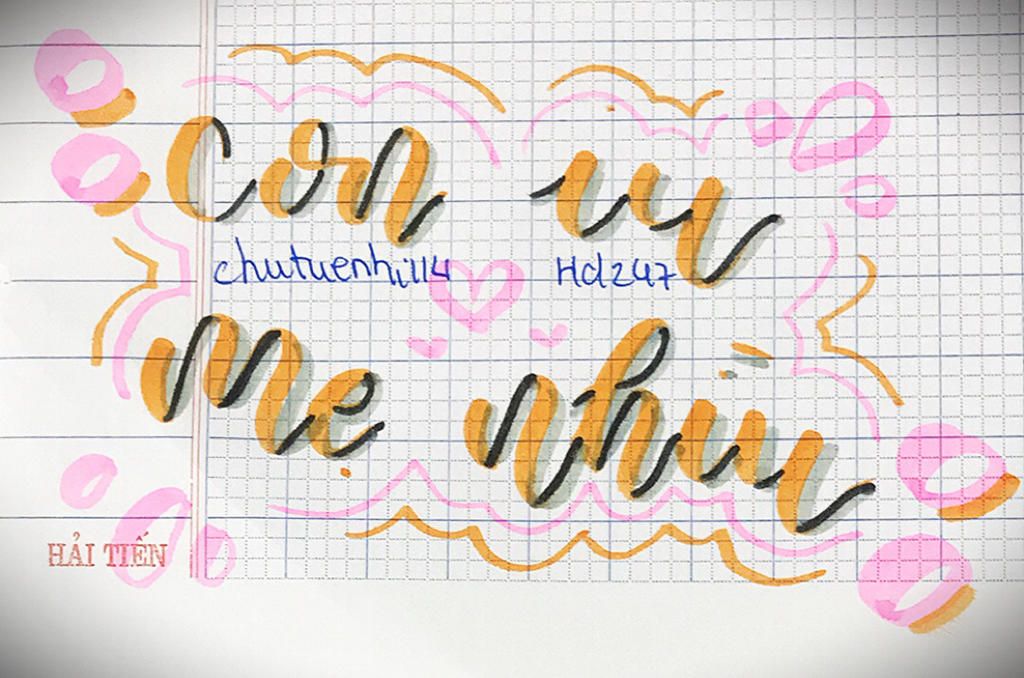 Con iu
chutuenhi114 Hdz247
mẹ nhìu
HẢI TIẾN